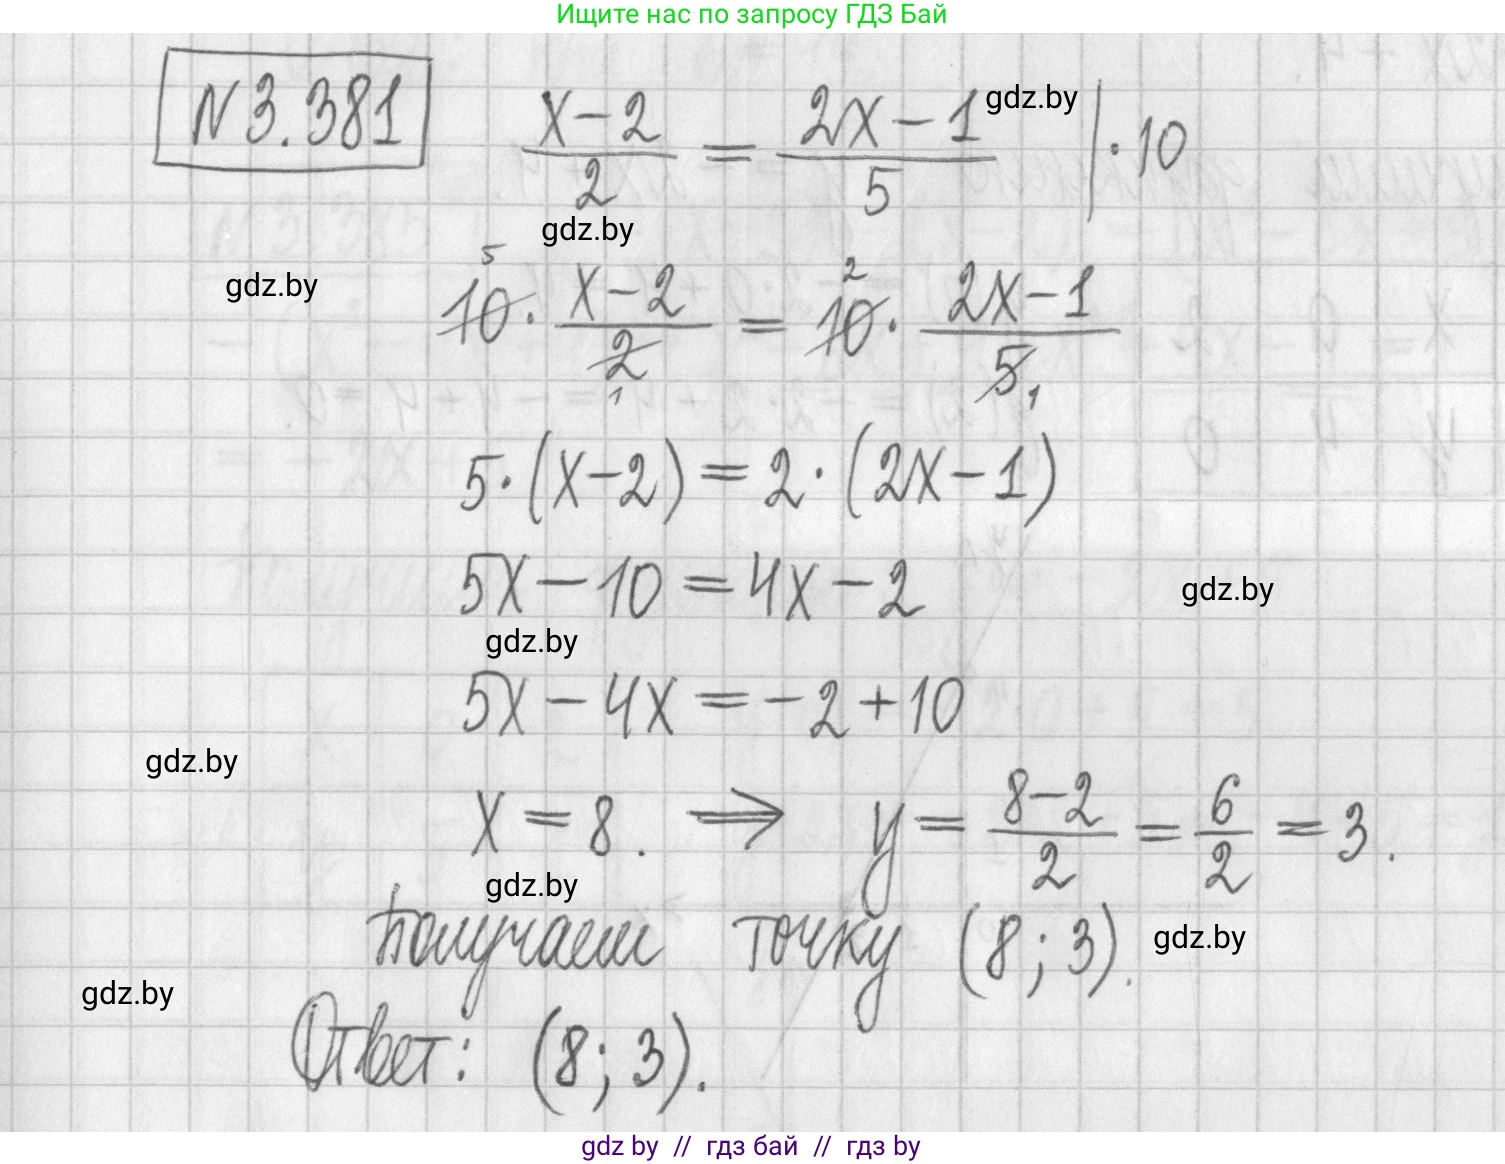 Ищите нас по запросу ГДЗ Бай
N 3.381
x-2/2 = 2x-1/5 | · 10
gdz.by
gdz.by
gdz.by
10⁵ · x-2/2₁ = 10² · 2x-1/5₁
5·(x-2) = 2·(2x-1)
5x - 10 = 4x - 2
gdz.by
gdz.by
5x - 4x = -2 + 10
gdz.by
x = 8. ⇒ y = 8-2/2 = 6/2 = 3.
gdz.by
Получаем точку (8; 3).
gdz.by
gdz.by
Ответ: (8; 3).
gdz by // гдз бай // гдз by